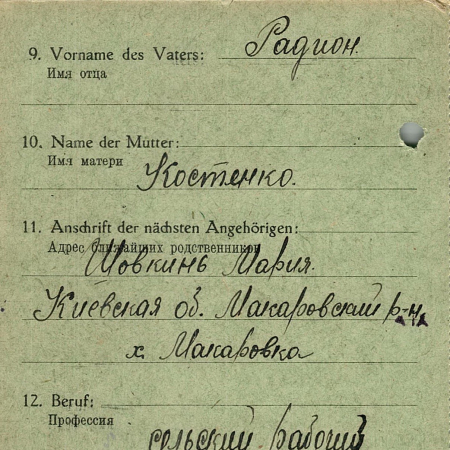 9. Vorname des Vaters: Радион.
Имя отца
10. Name der Mutter:
Имя матери Костенко.
11. Anschrift der nächsten Angehörigen:
Адрес ближайших родственников
Шовкинь Мария.
Киевская об. Макаровский р-н,
х. Макаровка
12. Beruf:
Профессия
сельский рабочий